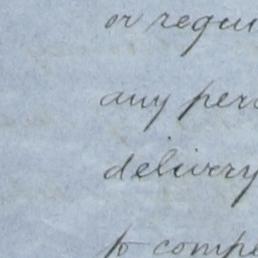 or requi
any pers
delivery
to compe